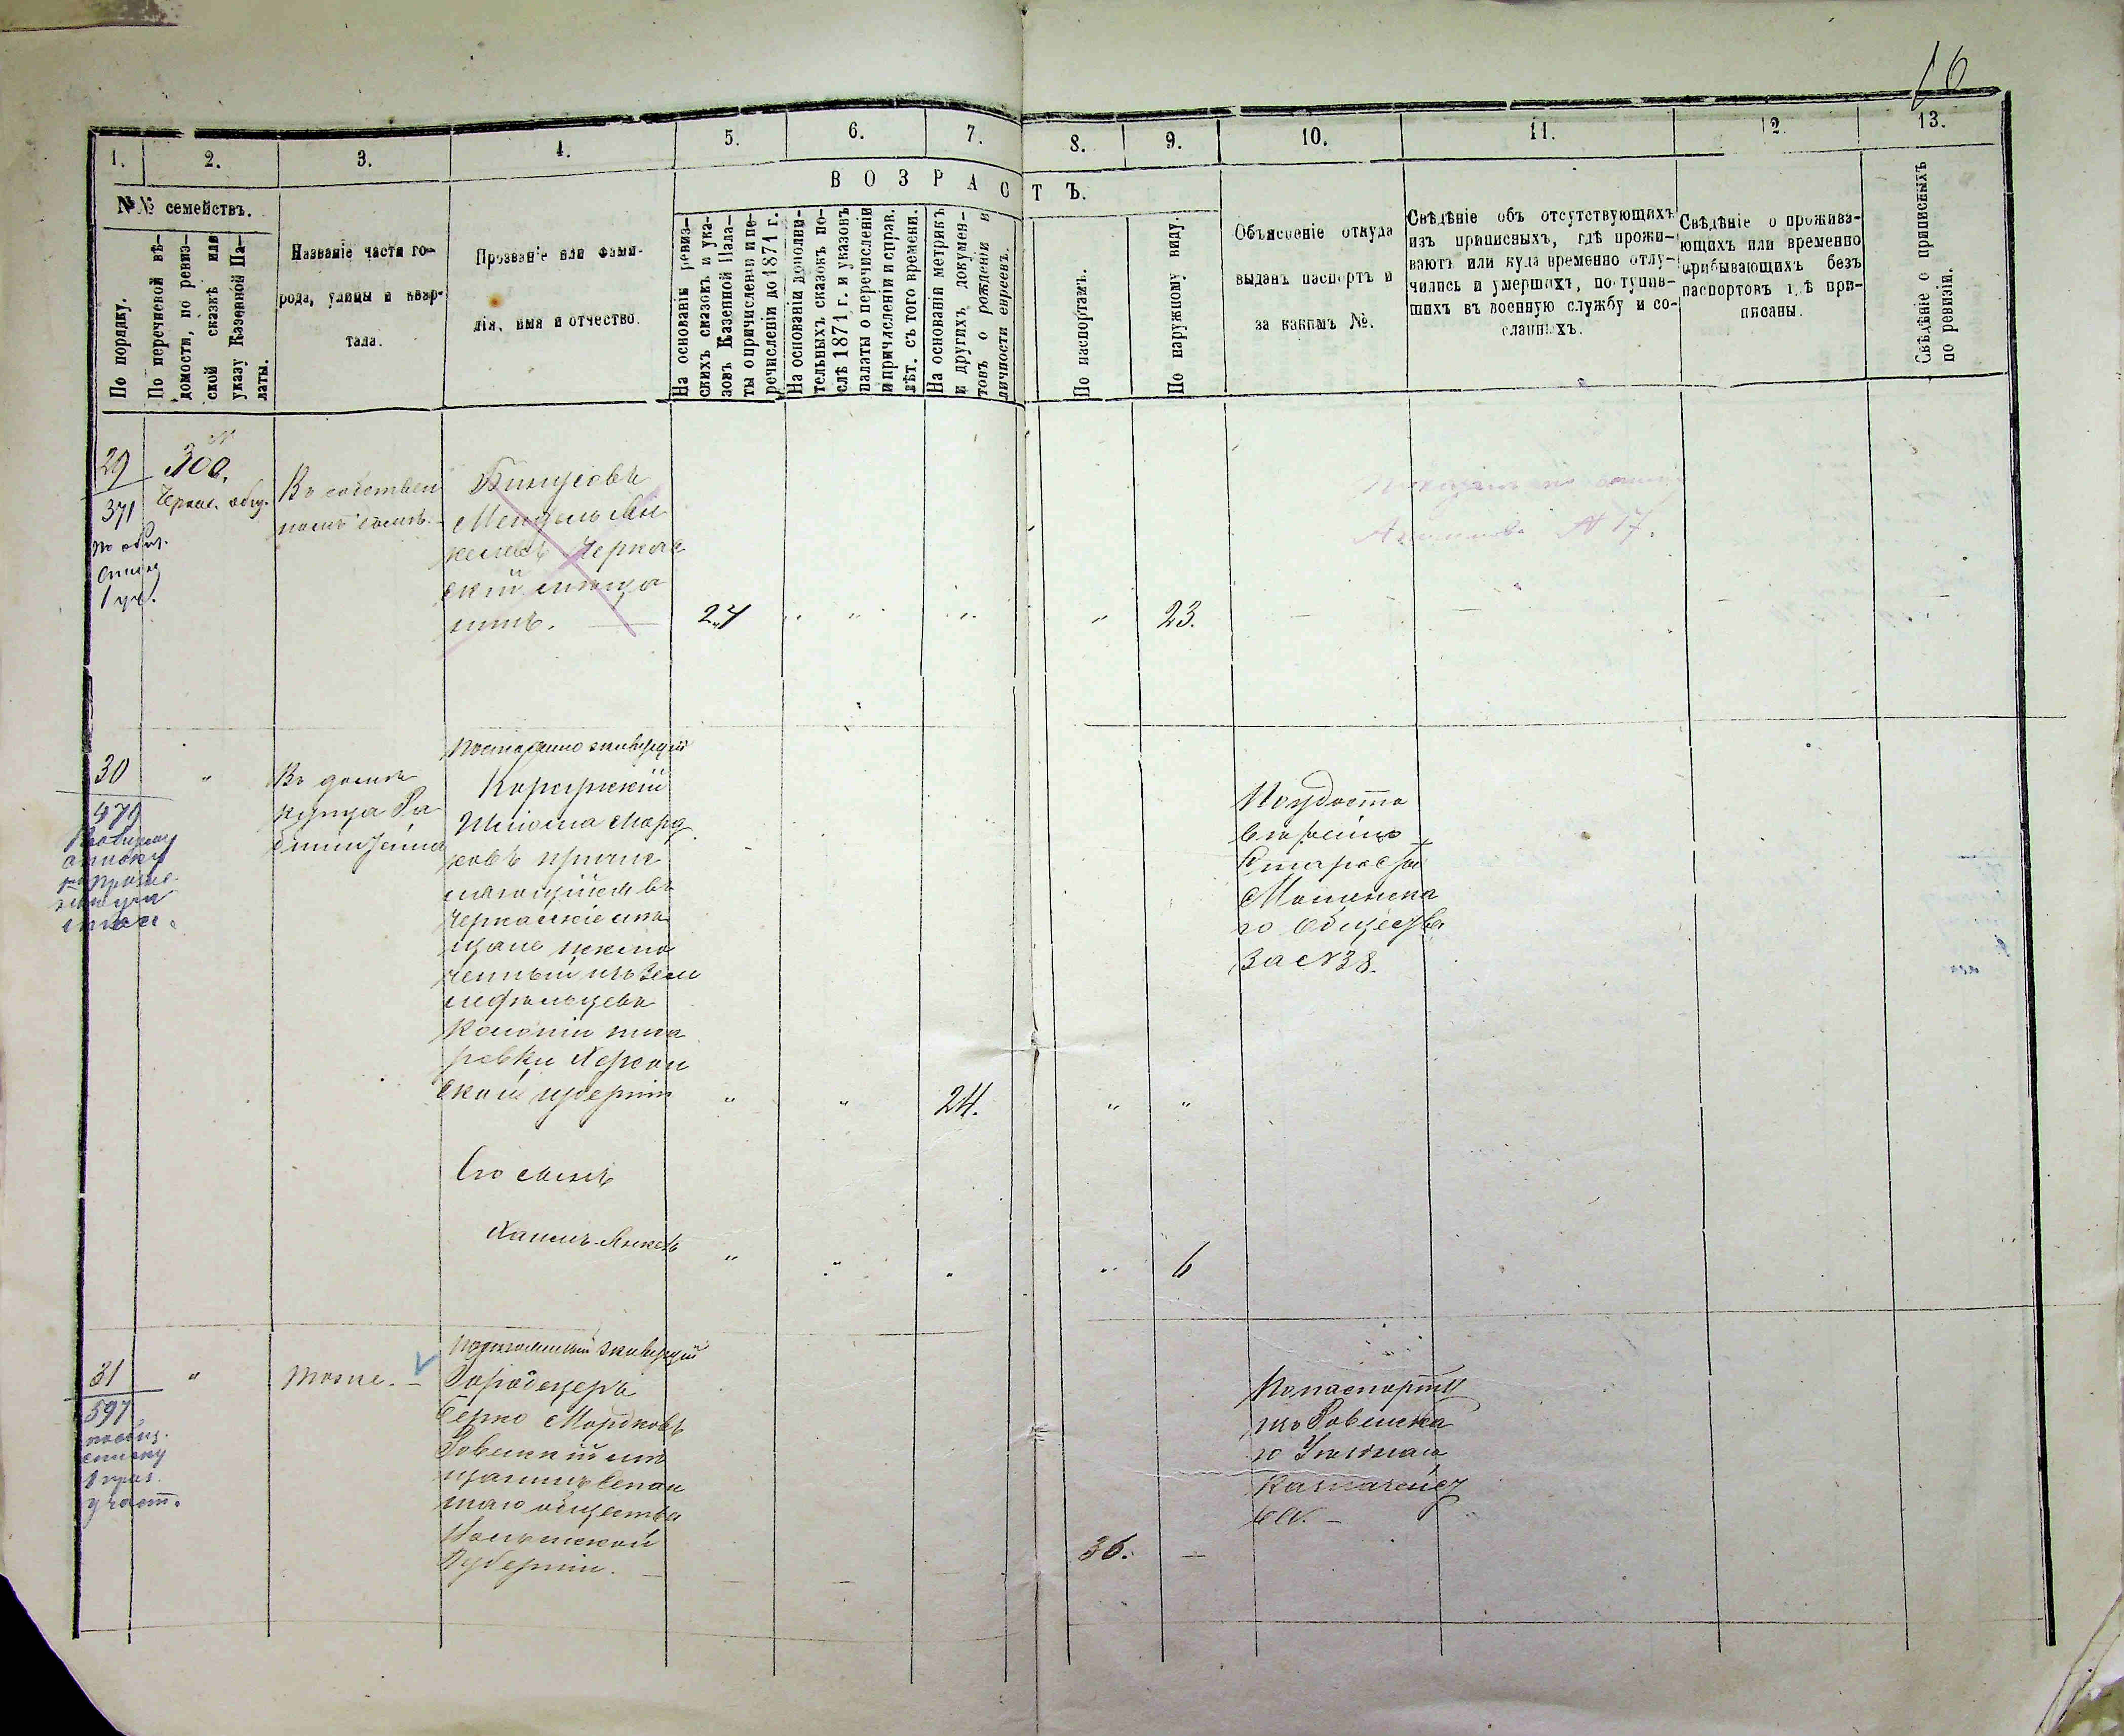 16
1.
2.
3.
4.
5.
6.
7.
8.
9.
10.
11.
12.
13.
№№ семействъ.
По порядку.
По перечневой вѣ-
домости, по ревиз-
ской сказкѣ или
указу Казенной Па-
латы.
Названіе части го-
рода, улицы и квар-
тала.
Прозваніе или фами-
лія, имя и отчество.
ВОЗРАСТЪ.
На основаніи ревиз-
скихъ сказокъ и ука-
зовъ Казенной Пала-
ты о причисленіи и пе-
речисленіи до 1871 г.
На основаніи дополни-
тельныхъ сказокъ по-
слѣ 1871 г. и указовъ
палаты о перечисленіи
и причисленіи и справ.
лѣт. съ того времени.
На основаніи метрикъ
и другихъ докумен-
товъ о рожденіи и
личности евреевъ.
По паспортамъ.
По наружному виду.
Объясненіе откуда
выданъ паспортъ и
за какимъ №.
Свѣдѣніе объ отсутствующихъ
изъ приписныхъ, гдѣ прожи-
ваютъ или куда временно отлу-
чились и умершихъ, поступив-
шихъ въ военную службу и со-
сланныхъ.
Свѣдѣніе о прожива-
ющихъ или временно
прибывающихъ безъ
паспортовъ гдѣ при-
писаны.
Свѣдѣніе о приписныхъ
по ревизіи.
29
371
по общ.
списку
1 уч.
300.
Черкас. общ.
Въ собствен
номъ домѣ.
Мендель Ян
келевъ Черкас
скій мѣща
нинъ.
24
23.
№ 17.
30
479
Въ домѣ
купца Ра
Постоянно живущій
Шліома Морд
ковъ
Черкаскіе мѣ
щане исклю
ченный изъ Земле
дѣльцевъ
Колоніи
Херсон
ской губерніи
24.
По удосто
вѣренію
Старосты
го Общества
За №38.
Его сынъ
Хаимъ-Янкель
6
31
597
по общ.
списку
участ.
Тоже.
живущій
Городецеръ
Берко Мордковъ
Ровенскій мѣ
щанинъ
наго общества
Волынской
Губерніи.
36.
По паспорту
изъ Ровенска
го Уѣзднаго
Казначейст
ва.